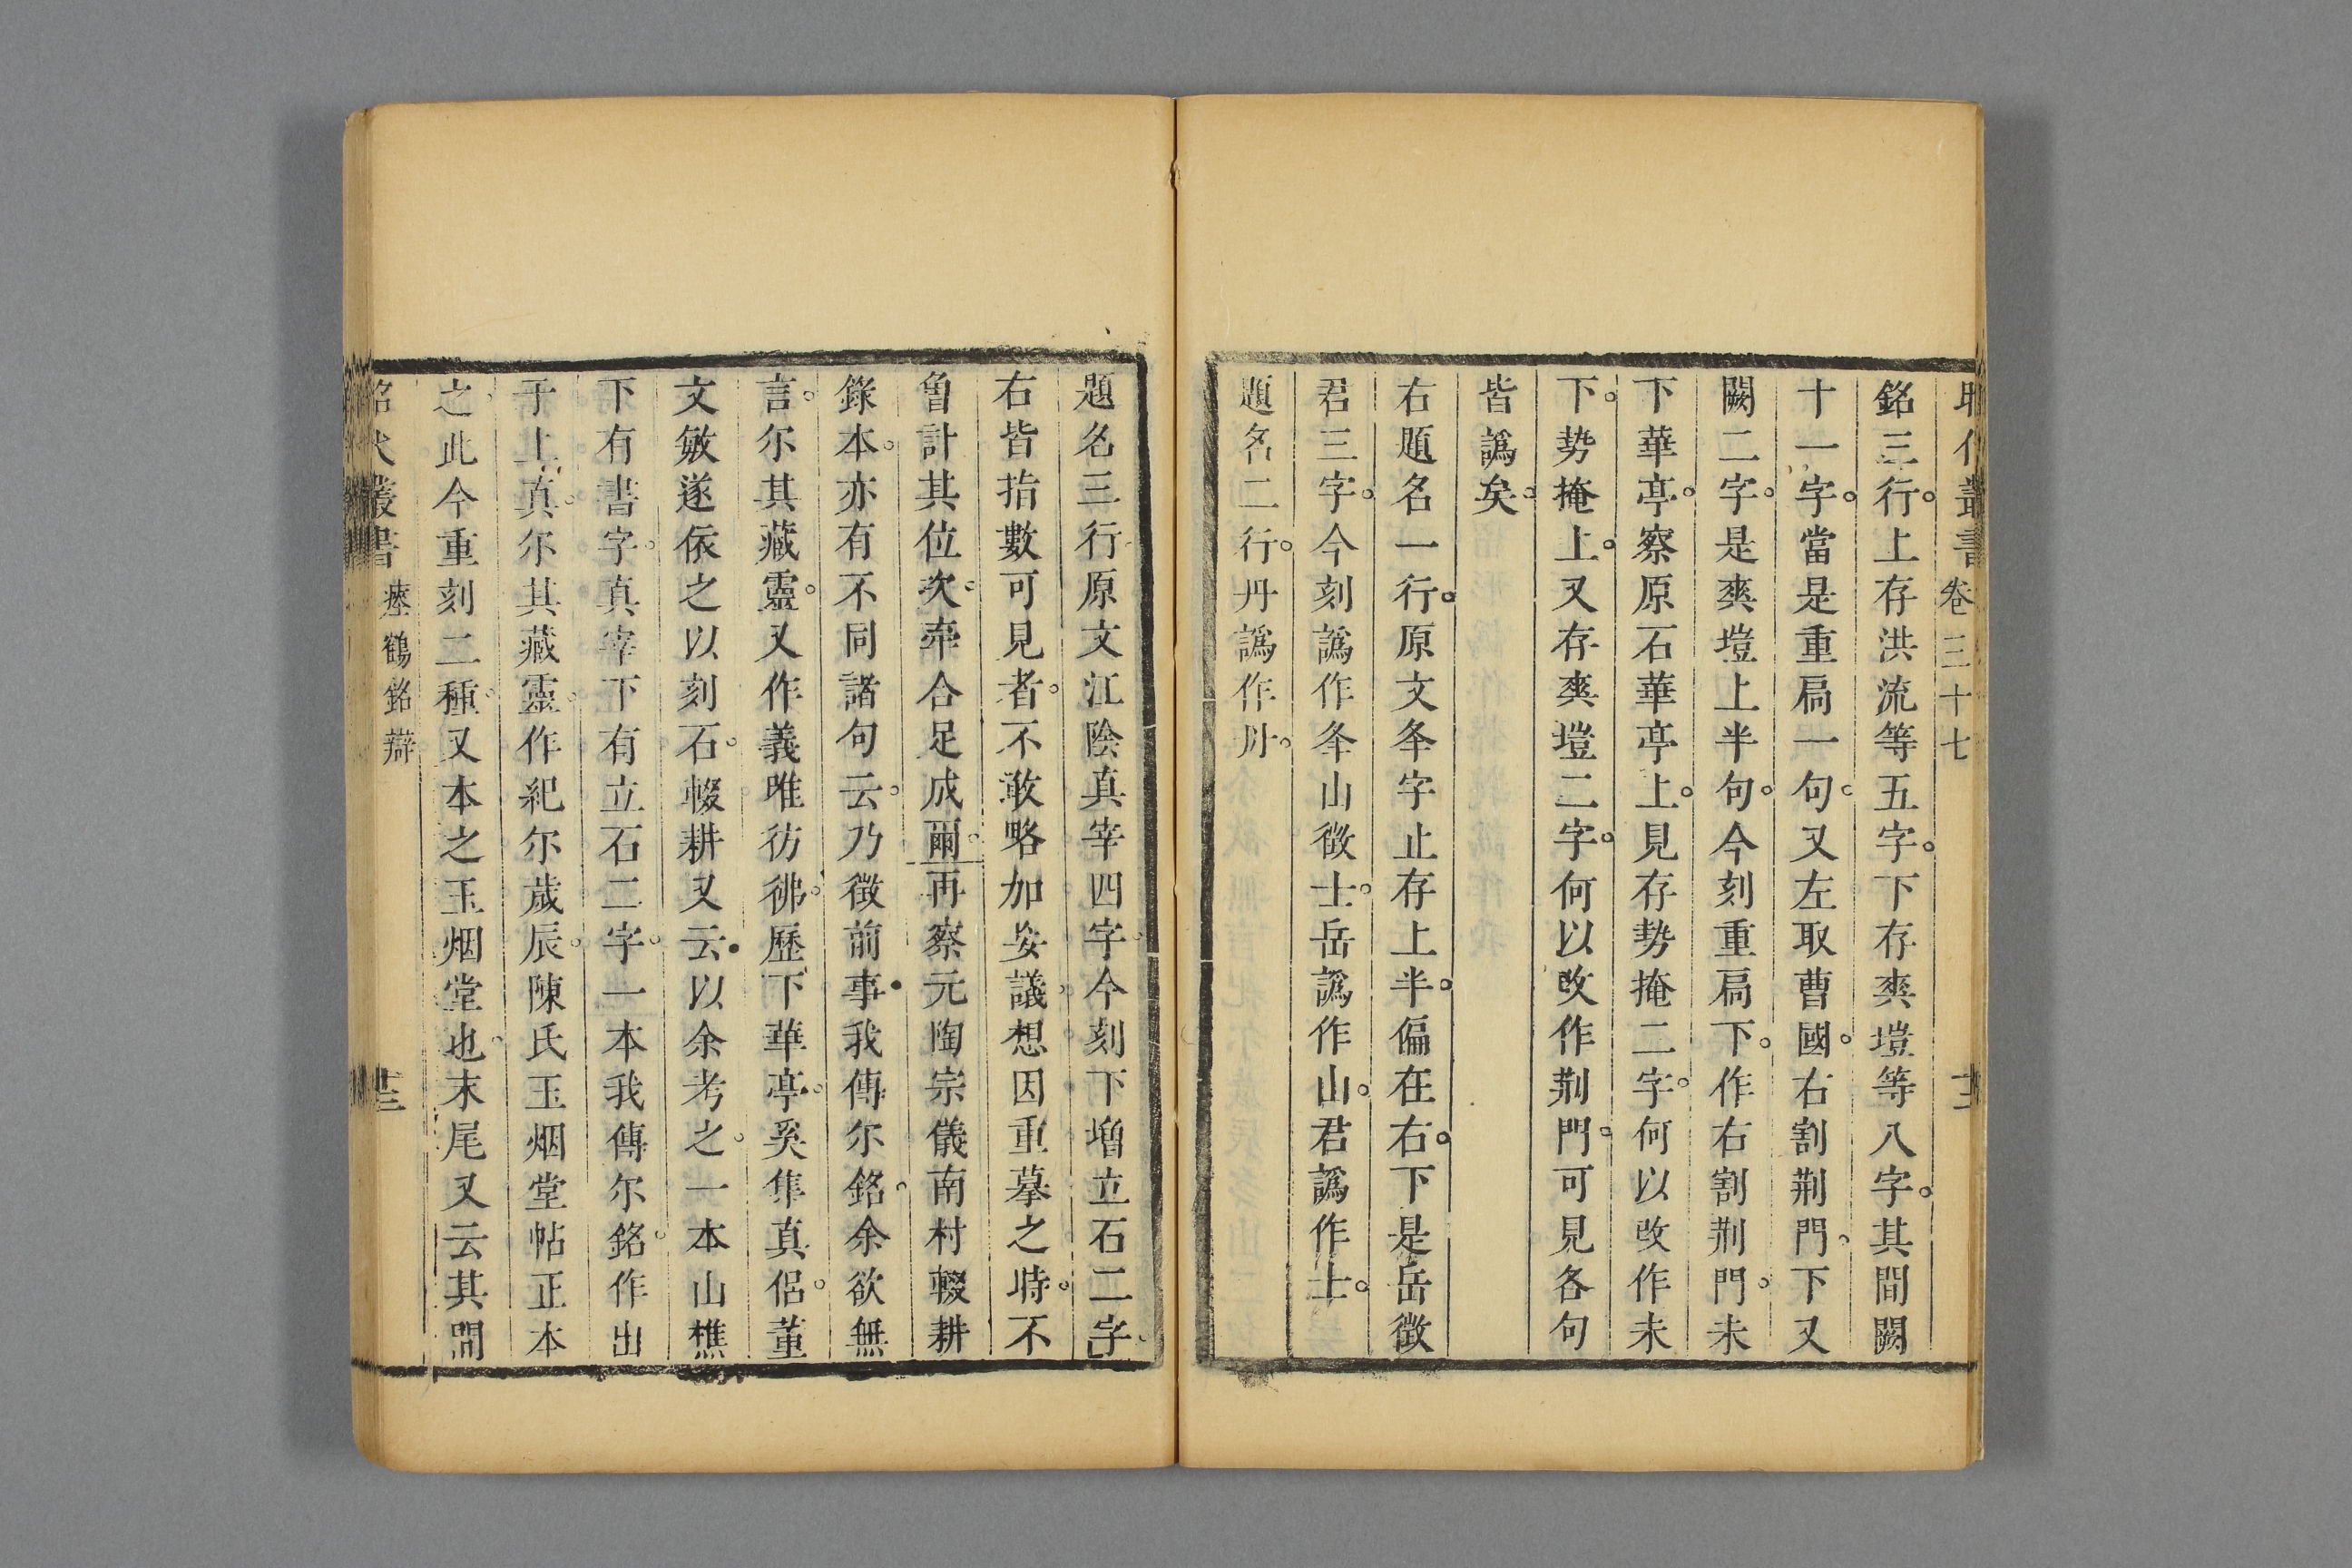 昭代叢書 卷三十七 十二
銘三行。上存洪流等五字。下存爽塏等八字。其間闕
十一字。當是重扃一句。又左取曹國。右割荆門。下又
闕二字。是爽塏上半句。今刻重扃下。作右割荆門。未
下華亭。察原石華亭上。見存勢掩二字。何以改作未
下。勢掩上。又存爽塏二字。何以改作荆門。可見各句
皆譌矣。
右題名一行。原文夅字止存上半。偏在右。下是岳徵
君三字。今刻譌作夅山徵士。岳譌作山。君譌作士。
題名二行。丹譌作井。
題名三行原文江陰真宰四字。今刻下增立石二字。
右皆指數可見者。不敢略加妄議。想因重摹之時。不
曾計其位次。牽合足成爾。再察元陶宗儀南村輟耕
錄本。亦有不同諸句云。乃徵前事。我傳尔銘。余欲無
言。尔其藏靈。又作義唯彷彿。歷下華亭。奚隼真侣。董
文敏遂依之以刻石。輟耕又云。以余考之。一本山樵
下有書字。真宰下有立石二字。一本我傳尔銘。作出
于上真。尔其藏靈。作紀尔歲辰。陳氏玉烟堂帖正本
之。此今重刻二種。又本之玉烟堂也。末尾又云其間
昭代叢書 瘞鶴銘辯 十三